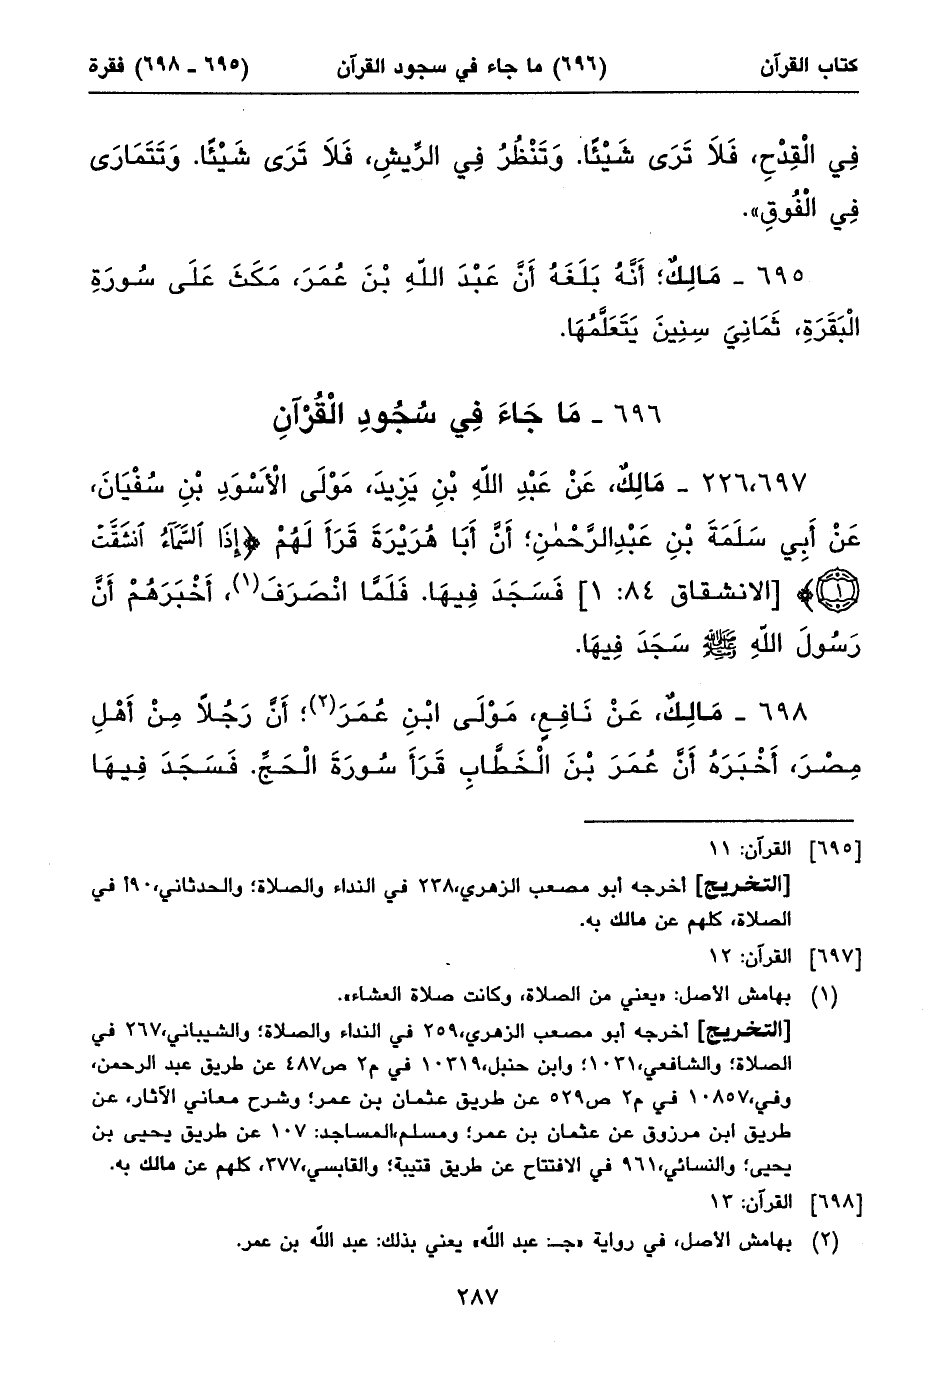 كتاب القرآن (٦٩٦) ما جاء في سجود القرآن (٦٩٥ - ٦٩٨) فقرة
فِي الْقِدْحِ، فَلَا تَرَى شَيْئًا. وَتَنْظُرُ فِي الرِّيشِ، فَلَا تَرَى شَيْئًا. وَتَتَمَارَى
فِي الْفُوقِ».
٦٩٥ - مَالِكٌ؛ أَنَّهُ بَلَغَهُ أَنَّ عَبْدَ اللّهِ بْنَ عُمَرَ، مَكَثَ عَلَى سُورَةِ
الْبَقَرَةِ، ثَمَانِيَ سِنِينَ يَتَعَلَّمُهَا.
٦٩٦ - مَا جَاءَ فِي سُجُودِ الْقُرْآنِ
٢٢٦،٦٩٧ - مَالِكٌ، عَنْ عَبْدِ اللّهِ بْنِ يَزِيدَ، مَوْلَى الْأَسْوَدِ بْنِ سُفْيَانَ،
عَنْ أَبِي سَلَمَةَ بْنِ عَبْدِالرَّحْمٰنِ؛ أَنَّ أَبَا هُرَيْرَةَ قَرَأَ لَهُمْ ﴿إِذَا ٱلسَّمَآءُ ٱنشَقَّتْ
۝١﴾ [الانشقاق ٨٤: ١] فَسَجَدَ فِيهَا. فَلَمَّا انْصَرَفَ(١)، أَخْبَرَهُمْ أَنَّ
رَسُولَ اللّهِ ﷺ سَجَدَ فِيهَا.
٦٩٨ - مَالِكٌ، عَنْ نَافِعٍ، مَوْلَى ابْنِ عُمَرَ(٢)؛ أَنَّ رَجُلاً مِنْ أَهْلِ
مِصْرَ، أَخْبَرَهُ أَنَّ عُمَرَ بْنَ الْخَطَّابِ قَرَأَ سُورَةَ الْحَجِّ. فَسَجَدَ فِيهَا
[٦٩٥] القرآن: ١١
[التخريج] أخرجه أبو مصعب الزهري،٢٣٨ في النداء والصلاة؛ والحدثاني،٩٠أ في
الصلاة، كلهم عن مالك به.
[٦٩٧] القرآن: ١٢
(١) بهامش الأصل: «يعني من الصلاة، وكانت صلاة العشاء».
[التخريج] أخرجه أبو مصعب الزهري،٢٥٩ في النداء والصلاة؛ والشيباني،٢٦٧ في
الصلاة؛ والشافعي،١٠٣١؛ وابن حنبل،١٠٣١٩ في م٢ ص٤٨٧ عن طريق عبد الرحمن،
وفي،١٠٨٥٧ في م٢ ص٥٢٩ عن طريق عثمان بن عمر؛ وشرح معاني الآثار، عن
طريق ابن مرزوق عن عثمان بن عمر؛ ومسلم،المساجد: ١٠٧ عن طريق يحيى بن
يحيى؛ والنسائي،٩٦١ في الافتتاح عن طريق قتيبة؛ والقابسي،٣٧٧، كلهم عن مالك به.
[٦٩٨] القرآن: ١٣
(٢) بهامش الأصل، في رواية «جـ: عبد اللّه» يعني بذلك: عبد اللّه بن عمر.
٢٨٧